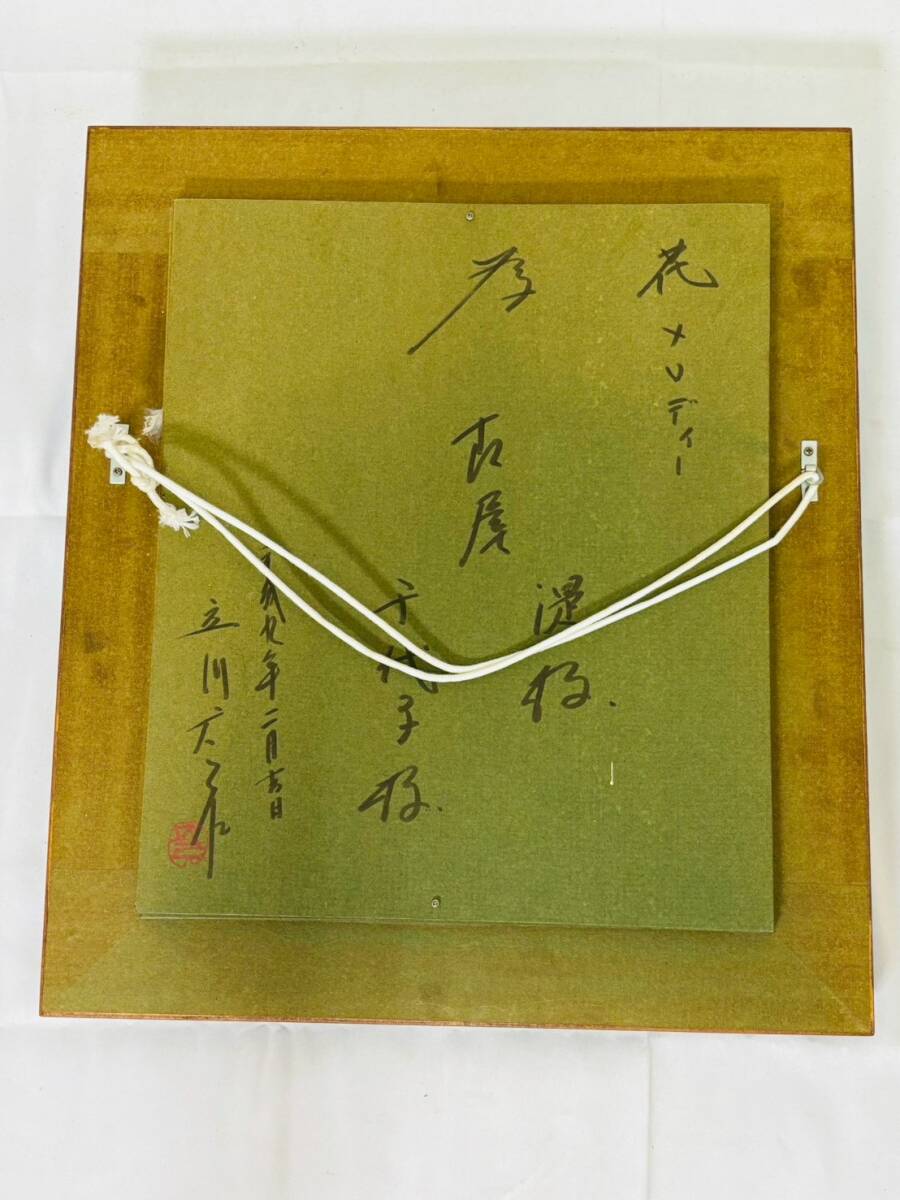 花メロディー
為
古屋
様
千代子様
平成九年二月吉日
立川広作